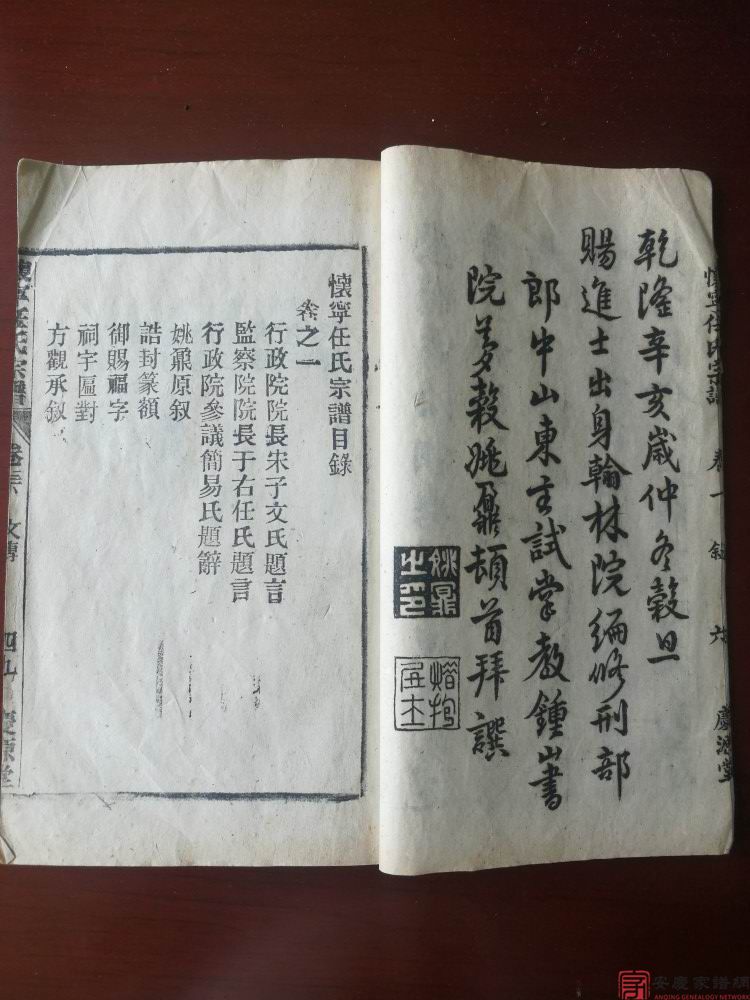 懷寧任氏宗譜 卷一 敘 六 慶源堂
乾隆辛亥歲仲冬穀旦
賜進士出身翰林院編修刑部
郎中山東主試掌教鍾山書
院夢穀姚鼐頓首拜譔
姚鼐之印
懷寧任氏宗譜目錄
卷之一
行政院院長宋子文氏題言
監察院院長于右任氏題言
行政院參議簡易氏題辭
姚鼐原叙
誥封篆額
御賜福字
祠宇匾對
方觀承叙
宗譜
文傳
慶源堂
安慶家譜網
ANQING GENEALOGY NETWORK